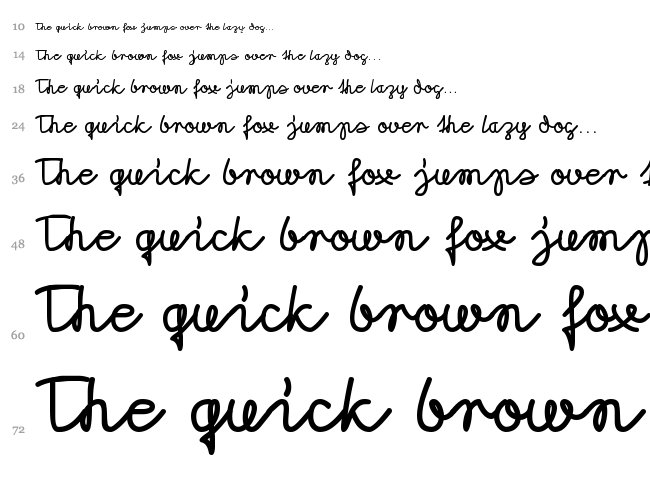 10 The quick brown fox jumps over the lazy dog...
14 The quick brown fox jumps over the lazy dog...
18 The quick brown fox jumps over the lazy dog...
24 The quick brown fox jumps over the lazy dog...
36 The quick brown fox jumps over
48 The quick brown fox jump
60 The quick brown fox
72 The quick brown